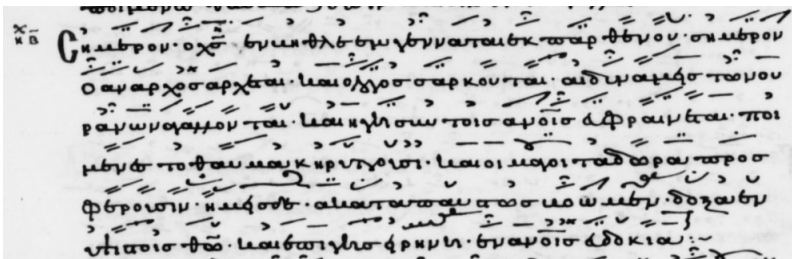 Σημερον · ο χ̅ς̅ · εν βηθλεεμ γενναται εκ παρθενου · σημερον
ο αναρχος αρχεται · και ο λογος σαρκουται · αι δυναμεις των ου
ρανων αγαλλονται · και η γη συν τοις α̅ν̅ο̅ι̅ς̅ ευφραινεται · ποι
μενες το θαυμα κηρυττουσι · και οι μαγοι τα δωρα προσ
φερουσιν · ημεις δε · ακαταπαυστως βοωμεν · δοξα εν
υψιστοις θ̅ω̅ · και επι γης ειρηνη · εν α̅ν̅ο̅ι̅ς̅ ευδοκια :~